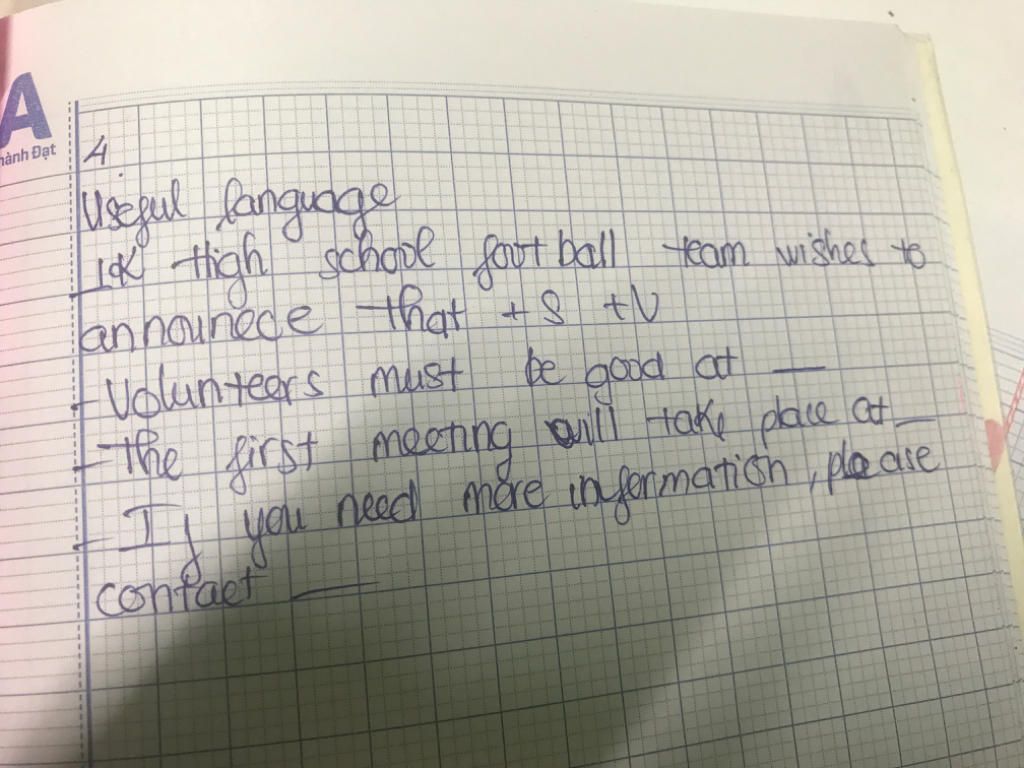 A
hành Đạt
4
Useful language
LK High school football team wishes to
announece that + S + V
- Volunteers must be good at —
- The first meeting will take place at —
- If you need more information, please
contact —